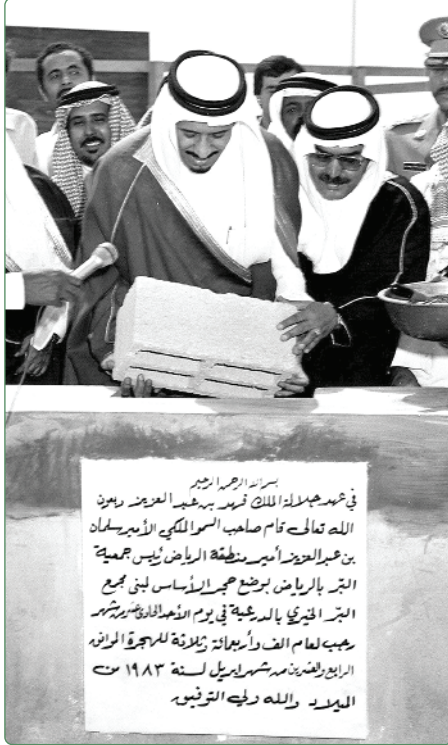 بسم الله الرحمن الرحيم
في عهد جلالة الملك فهد بن عبد العزيز وبعون
الله تعالى قام صاحب السمو الملكي الأمير سلمان
بن عبد العزيز أمير منطقة الرياض رئيس جمعية
البر بالرياض بوضع حجر الأساس لمبنى مجمع
البر الخيري بالدرعية في يوم الأحد الحادي عشر من شهر
رجب لعام الف وأربعمائة وثلاثة للهجرة الموافق
الرابع والعشرين من شهر ابريل لسنة ١٩٨٣ من
الميلاد والله ولي التوفيق